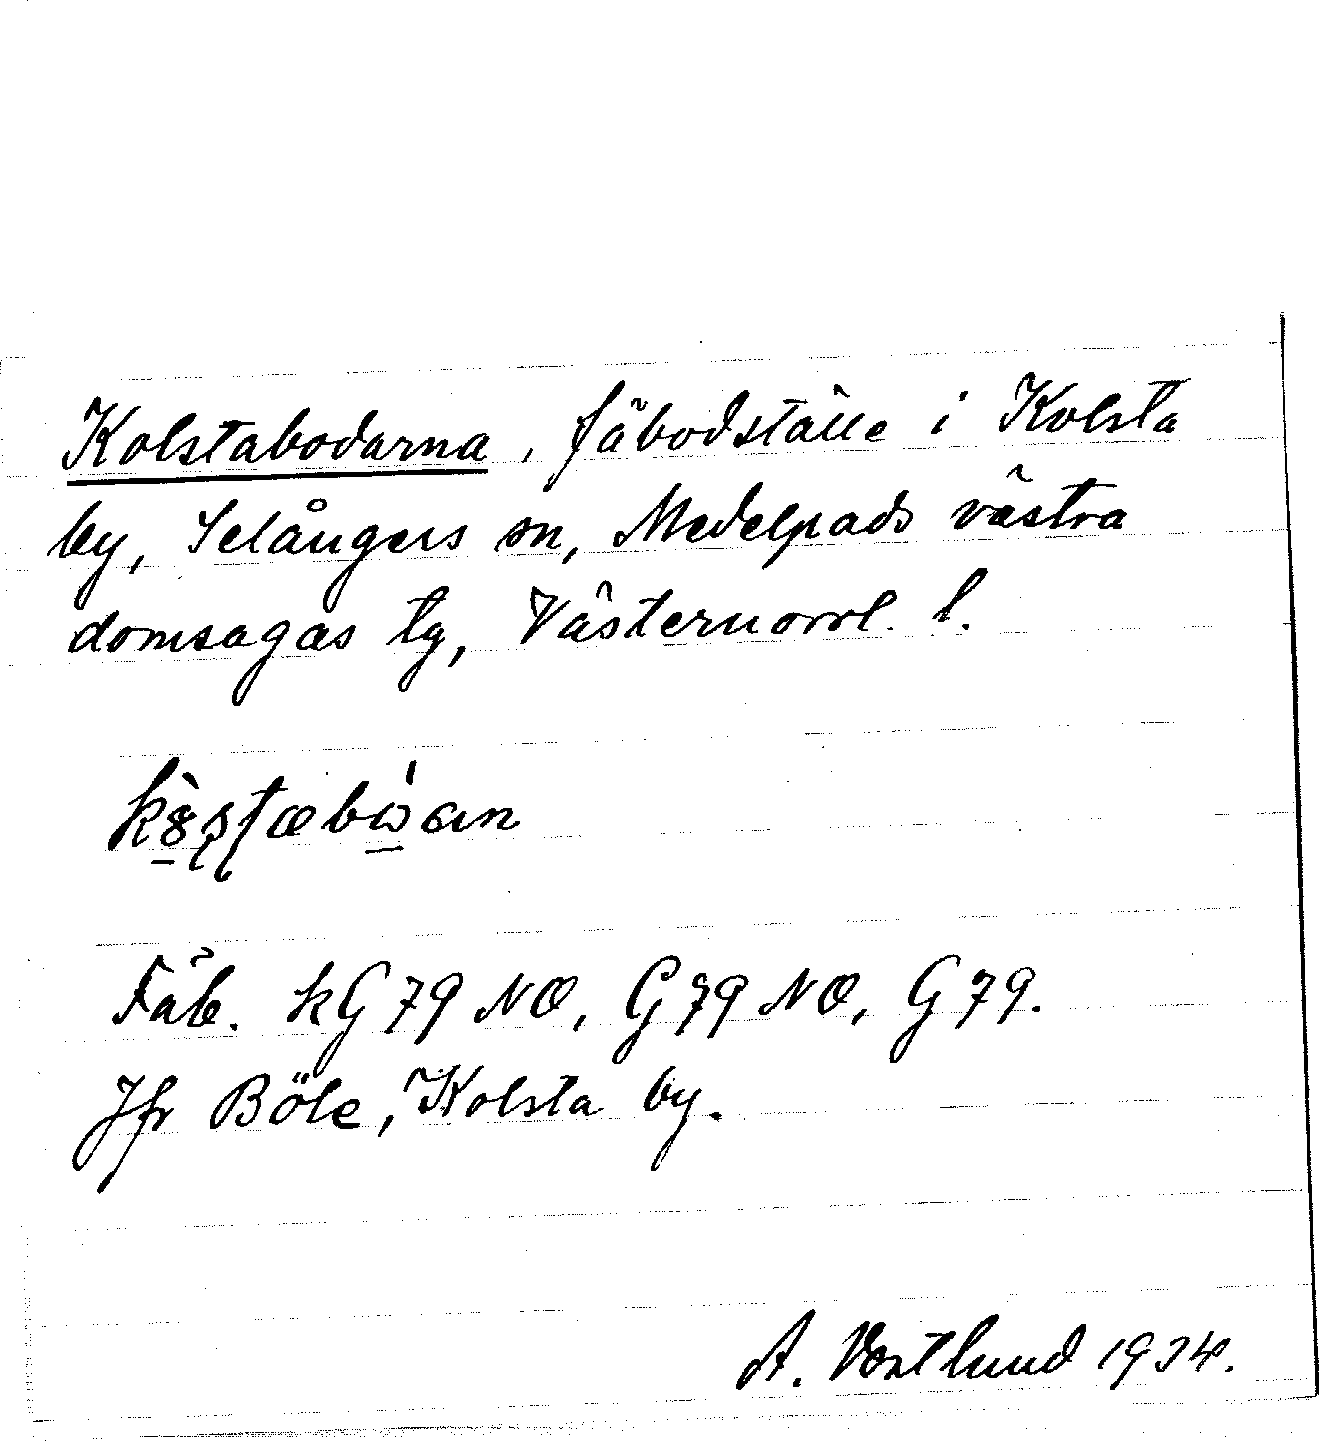 Kolstabodarna, fäbodställe i Kolsta
by, Selångers sn, Medelpads västra
domsagas tg, Västernorrl. l.
Fäb. kG79 NO, G79 NO, G79.
Jfr Böle, Kolsta by.
A. Vestlund 1934.